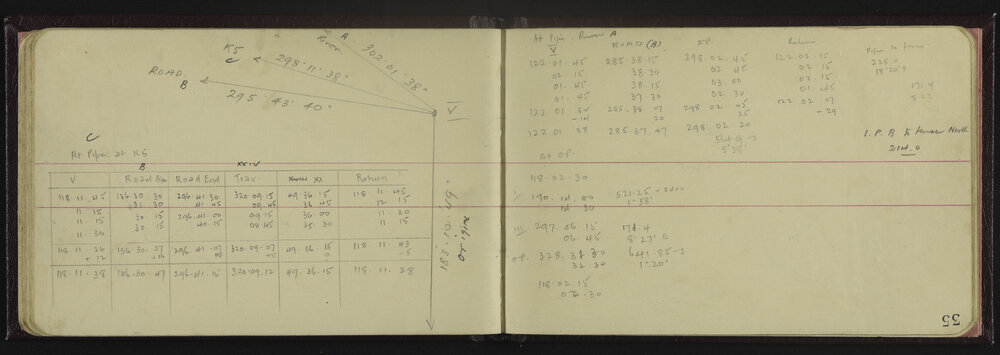 A
River
302° 01' 38"
K5
C
298° 11' 38"
ROAD
B
295° 43' 40"
V
183° 10' 49"
C
At Pipe at K5
B XXIV
V Road Pipe Road End Trav. XX Return
118 11 45 136.30.30 296.41.30 320.09.15 49.36.15 118 11 45
131 30 41.45 09 45 36 45 12 15
11 15 30 15 296 41.00 09 15 36.00 11 30
11 15 30 15 40.15 08 45 35 30 11 15
11 30
118 11 26 136.30.37 296 41.07 320.09.07 49.36.15 118 11 43
+ 12 +10 08 0 -5
118.11.38 136.30.47 296.41.15 320.09.12 49.36.15 118.11.38
At Pipe River A
V ROAD (B) O.P. Return
122.01.45 285.38.15 298.02.45 122.02.15
02 15 38 30 02 45 02 15
01 45 38.15 03.00 02 15
01.45 37.30 02 30 01 45
122.01 52 285.38 07 298.02.45 122.02 07
-14 20 25 -29
122.01 38 285.37.47 298.02.20
225.0
18°20'
171.4
8.27
I.P. B to fence North
214.0
At O.P.
118.02.30
190.14.00
14 30
1°58'
III 297.06.15 171.4
06.45 8°23' E
O.P. 328.33.30 641.85
32.30 1°20'
118.02.15
02.30
35